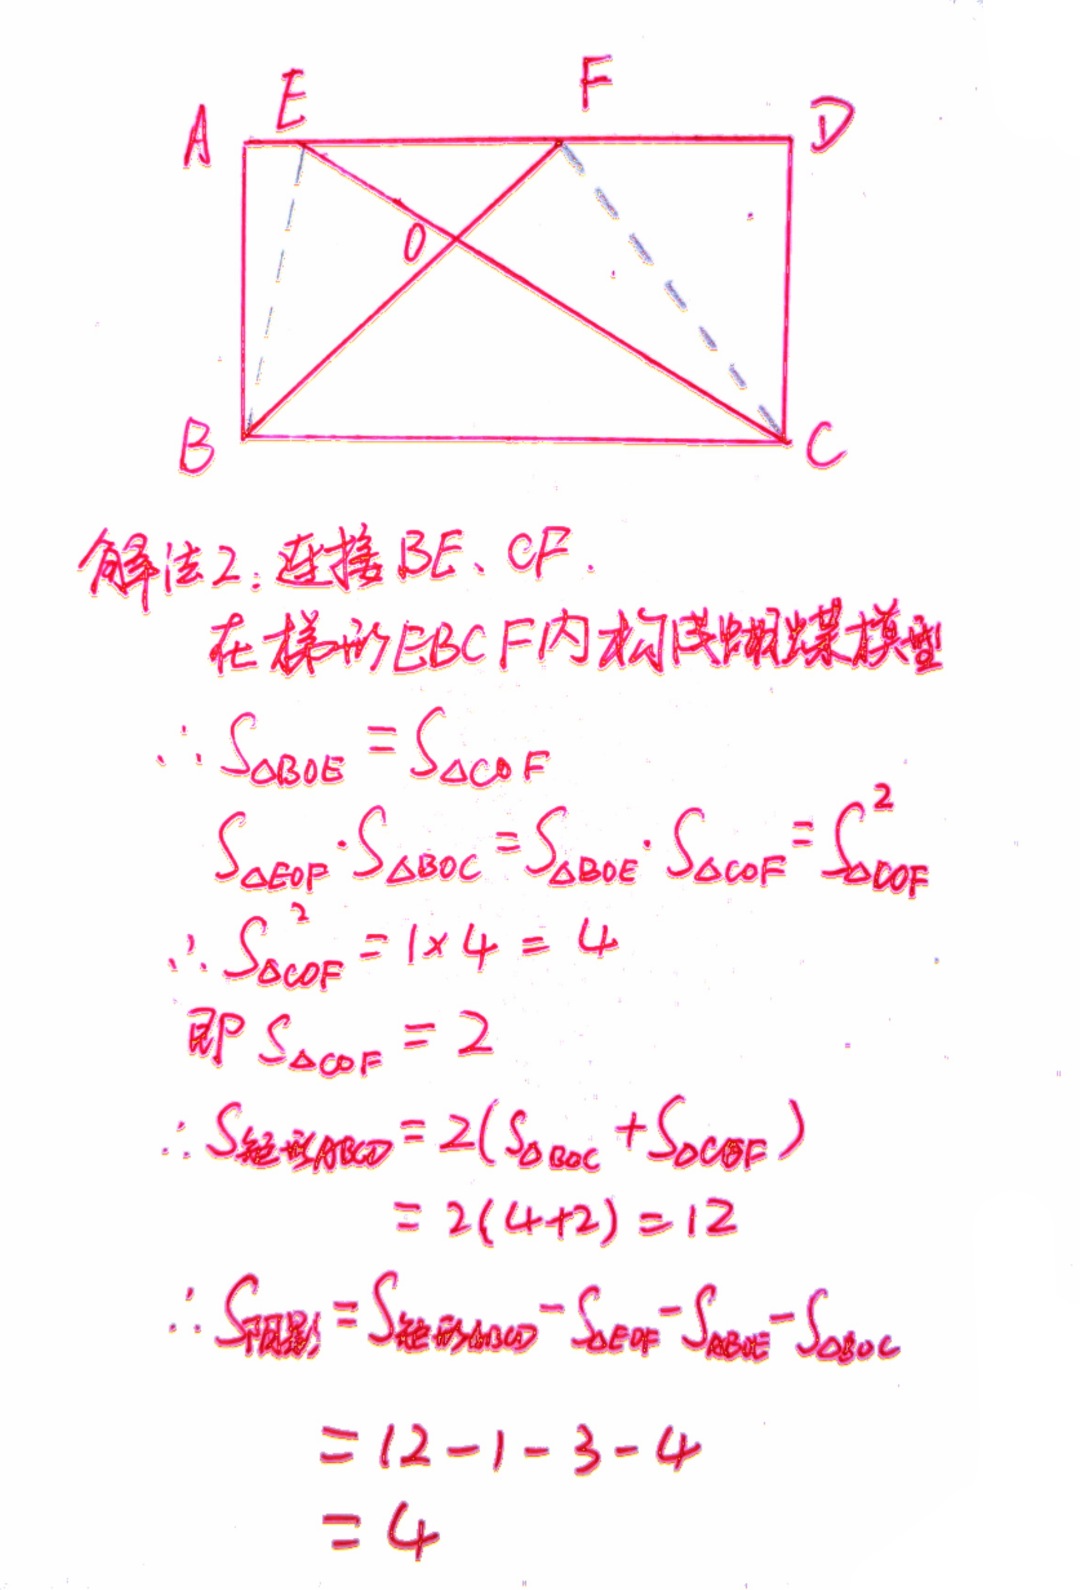 E F
A D
O
B C
解法2:连接BE、CF.
在梯形EBCF内构成蝴蝶模型
∴S△BOE=S△COF
S△EOF·S△BOC=S△BOE·S△COF=S²△COF
∴S²△COF=1×4=4
即S△COF=2
∴S矩形ABCD=2(S△BOC+S△COF)
=2(4+2)=12
∴S阴影=S矩形ABCD-S△EOF-S△BOE-S△BOC
=12-1-3-4
=4